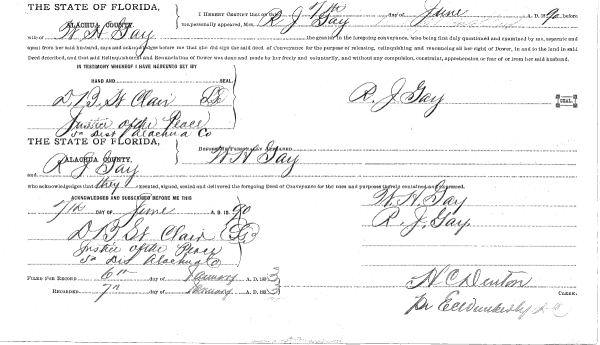 THE STATE OF FLORIDA,
ALACHUA COUNTY.
I HEREBY CERTIFY that on this 7th day of June A. D. 1890 before
me personally appeared, Mrs. R J Gay
wife of W H Gay the grantor in the foregoing conveyance, who being first duly questioned and examined by me, separate and
apart from her said husband, says and acknowledges before me that she did sign the said deed of Conveyance for the purpose of releasing, relinquishing and renouncing all her right of Dower, in and to the land in said
Deed described, and that said Relinquishment and Renunciation of Dower was done and made by her freely and voluntarily, and without any compulsion, constraint, apprehension or fear of or from her said husband.
IN TESTIMONY WHEREOF I HAVE HEREUNTO SET MY
HAND AND SEAL.
D. B. St Clair LS
R. J. Gay SEAL
Justice of the Peace
5th Dist Alachua Co
THE STATE OF FLORIDA,
ALACHUA COUNTY.
BEFORE ME PERSONALLY APPEARED W H Gay
and R J Gay
who acknowledges that they executed, signed, sealed and delivered the foregoing Deed of Conveyance for the uses and purposes therein contained and expressed.
ACKNOWLEDGED AND SUBSCRIBED BEFORE ME THIS
W. H. Gay
7th DAY OF June A. D. 1890
R. J. Gay
D B St Clair LS
Justice of the Peace
5th Dist Alachua Co
FILED FOR RECORD 6th day of January A. D. 189
H C Denton
RECORDED 7th day of January A. D. 189
CLERK.